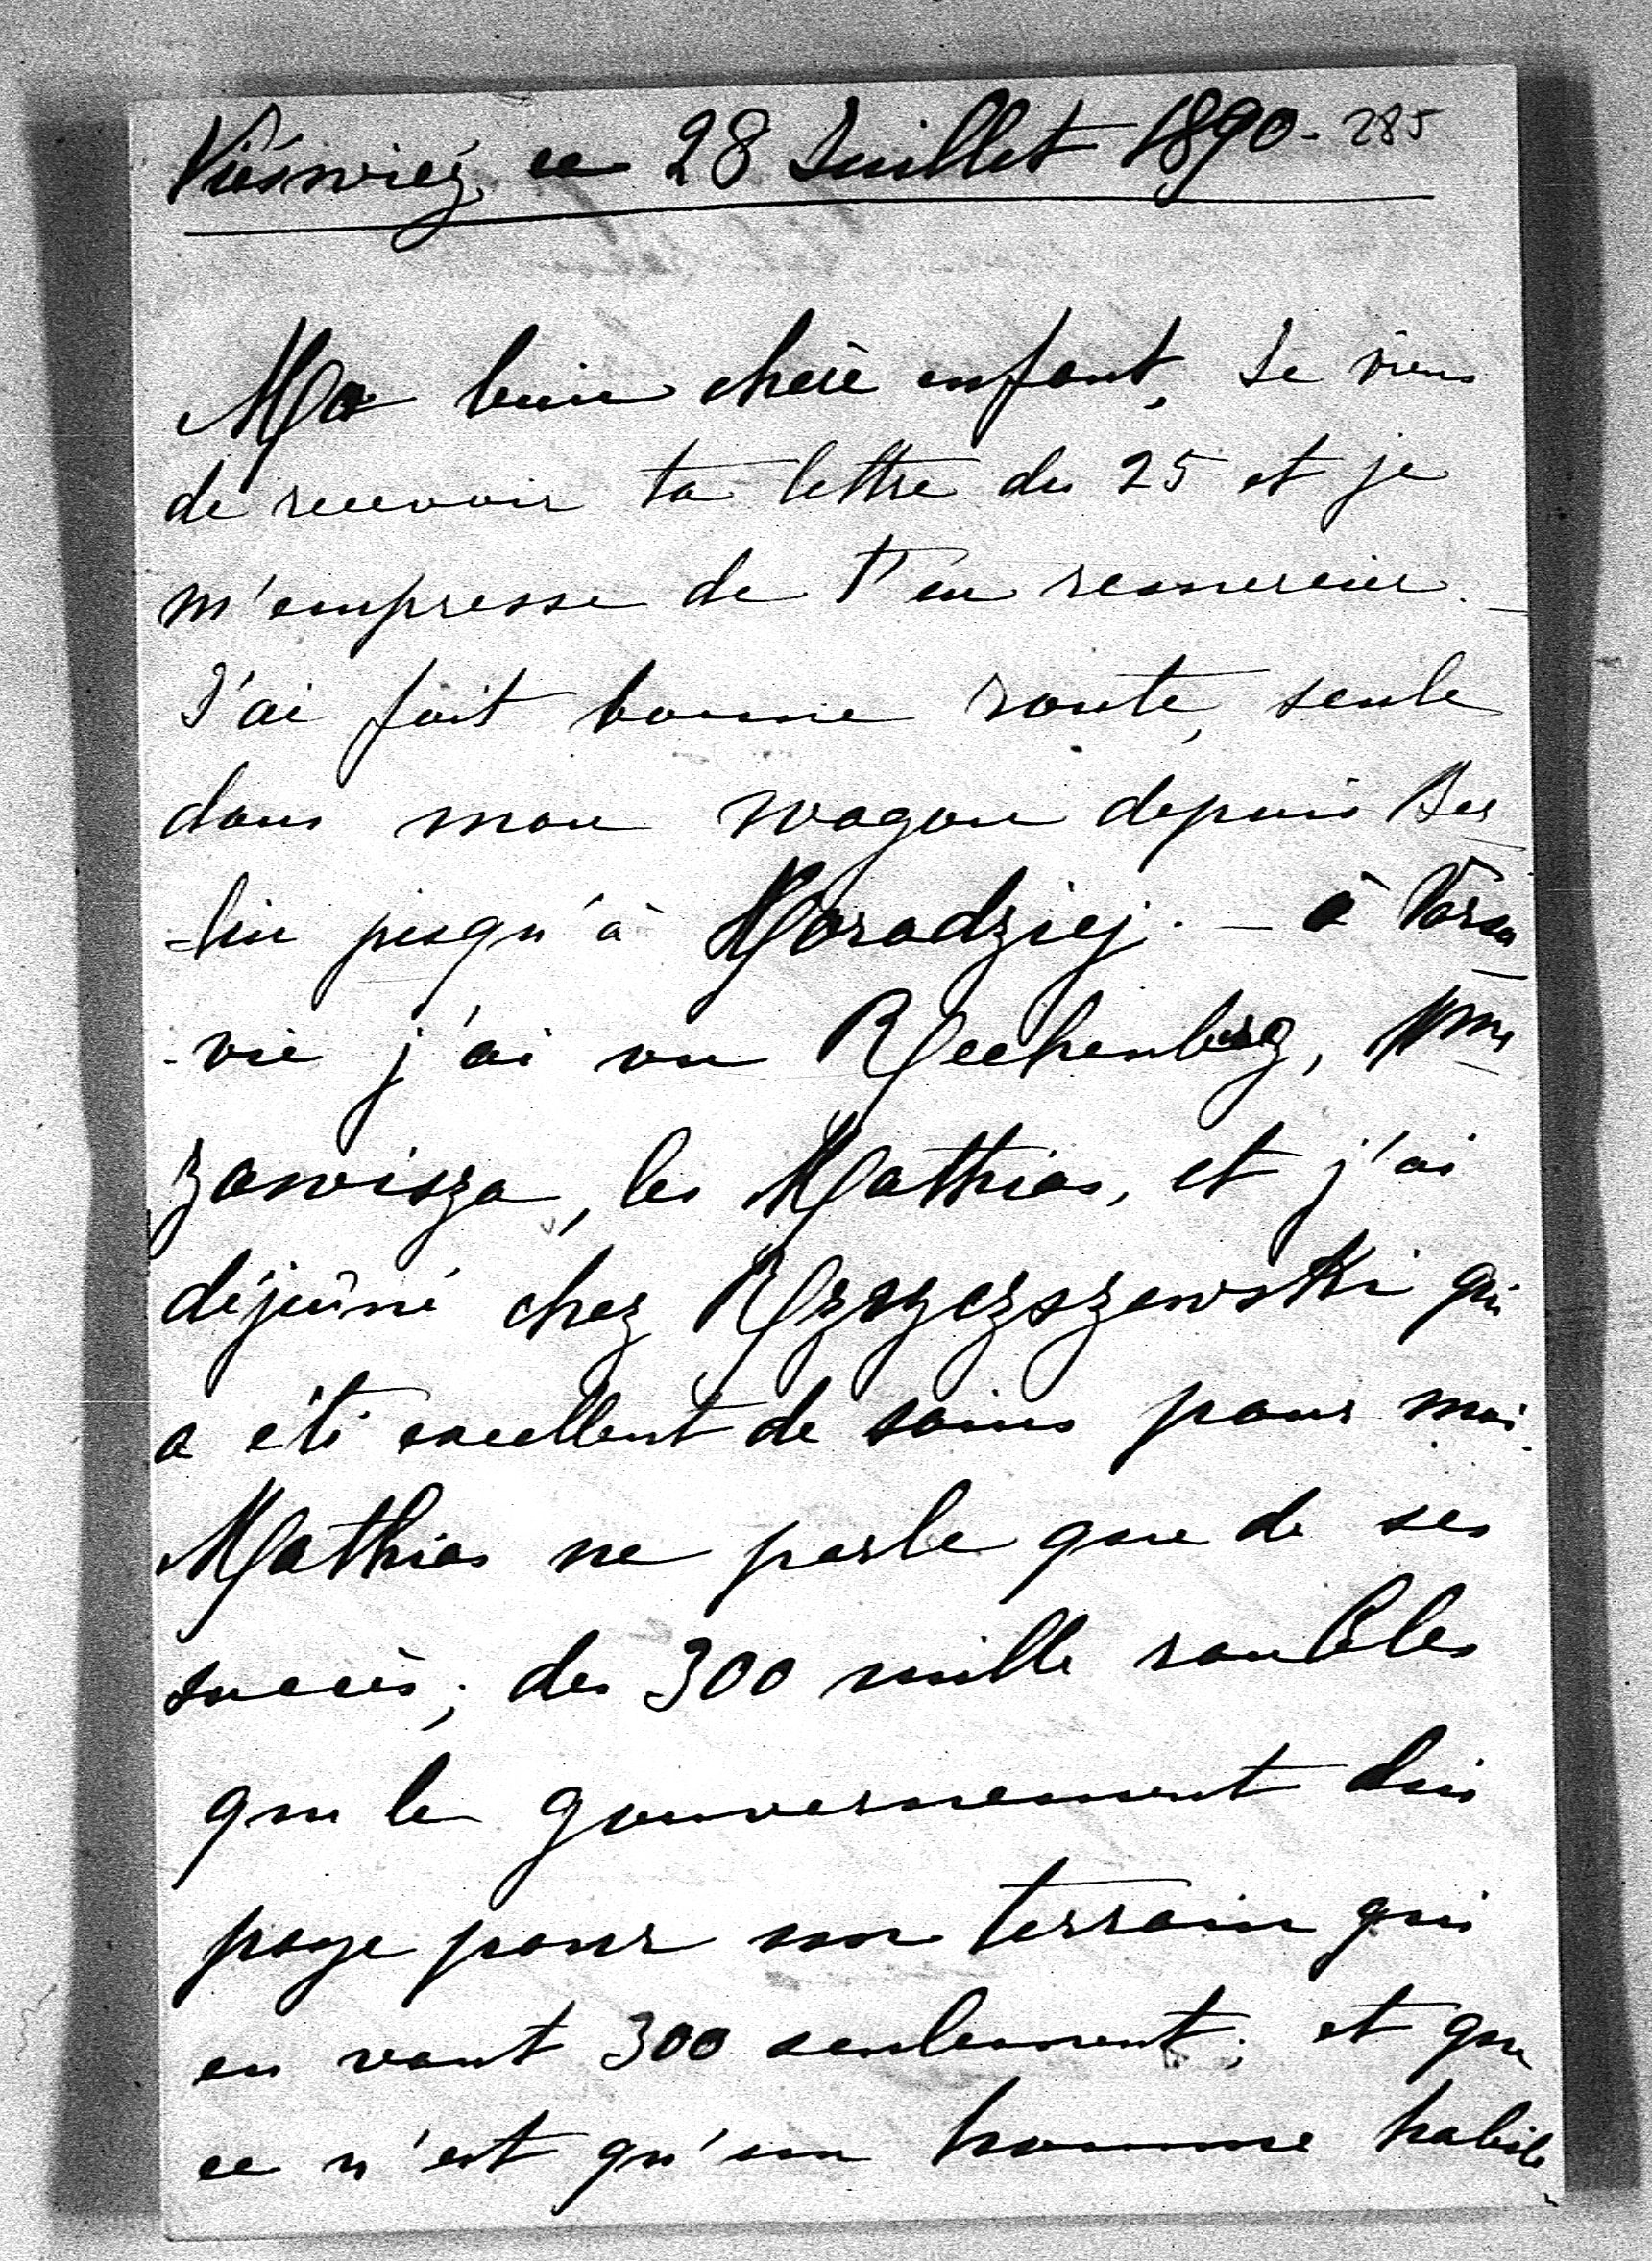 Nieśwież ce 28 Juillet 1890 - 285
Ma bien chère enfant, Je viens
de recevoir ta lettre du 25 et je
m'empresse de t'en remercier. -
J'ai fait bonne route, seule
dans mon wagon depuis Ber-
-lin jusqu'à Horodziej. - à Varso-
-vie j'ai vu Rechenberg, Mme
Zawisza, les Mathias, et j'ai
déjeûné chez Rzyszczewski qui
a été excellent de soins pour moi.
Mathias ne parle que de ses
succès; des 300 mille roubles
que le gouvernement lui
paye pour un terrain qui
en vaut 300 seulement; et que
ce n'est qu'un homme habile